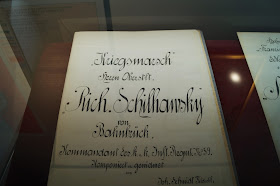 Kriegsmarsch
Herrn Oberstlt.
Rich. Schilhawsky
von
Bahnbrück,
Kommandant des k. k. Inft. Regmt. №
Komponiert u. gewidmet
von
Joh. Schmidt